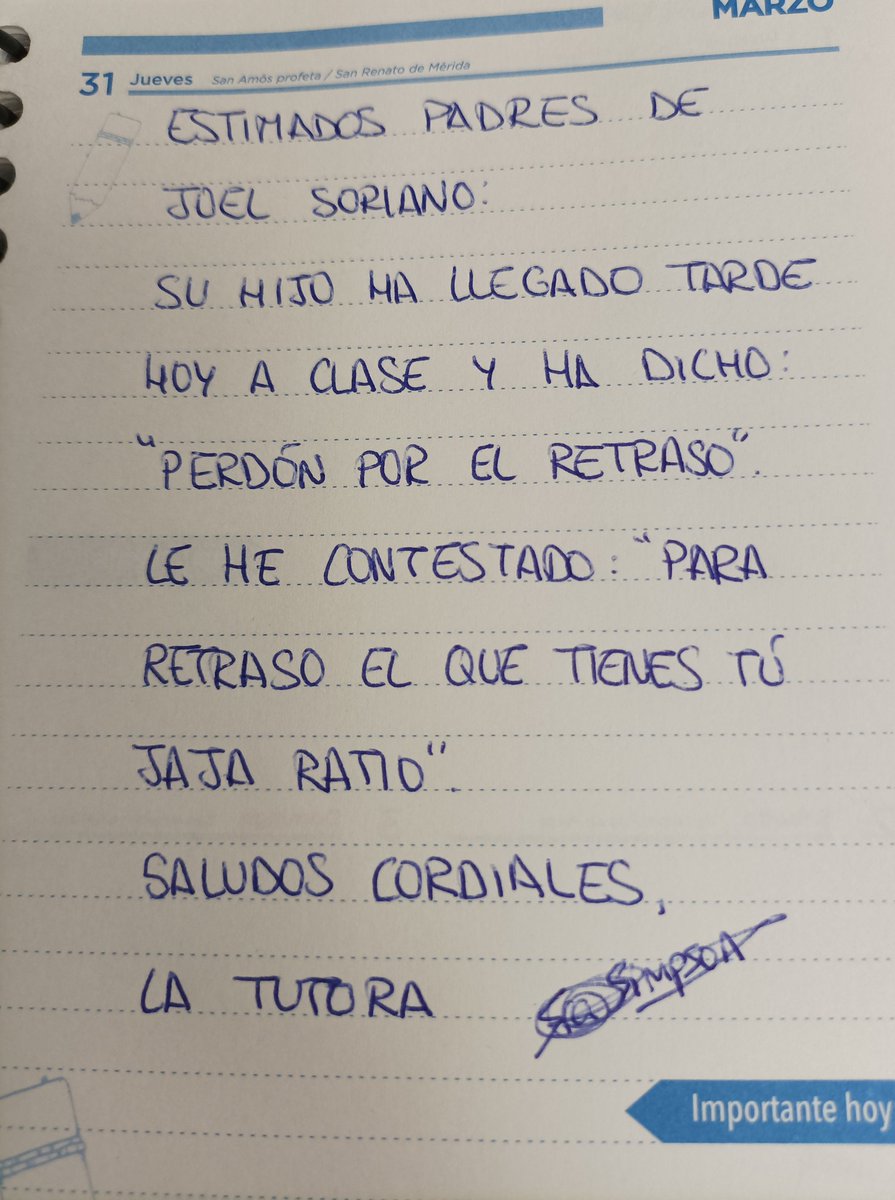 MARZO
31 Jueves San Amós profeta / San Renato de Mérida
ESTIMADOS PADRES DE
JOEL SORIANO:
SU HIJO HA LLEGADO TARDE
HOY A CLASE Y HA DICHO:
"PERDÓN POR EL RETRASO".
LE HE CONTESTADO: "PARA
RETRASO EL QUE TIENES TÚ
JAJA RATIO".
SALUDOS CORDIALES,
LA TUTORA
Importante hoy